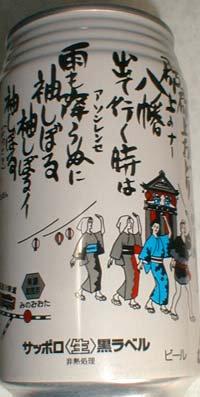 郡上のナー
八幡
出て行く時は
アソンレンセ
雨も降らぬに
袖しぼる
袖しぼるノー
袖しぼる
みのおおた
サッポロ〈生〉黒ラベル
非熱処理
ビール